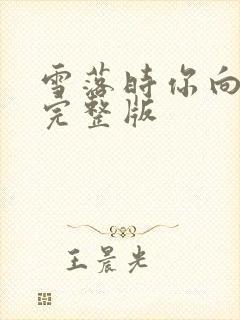 雪落时你向
完整版
王晨光